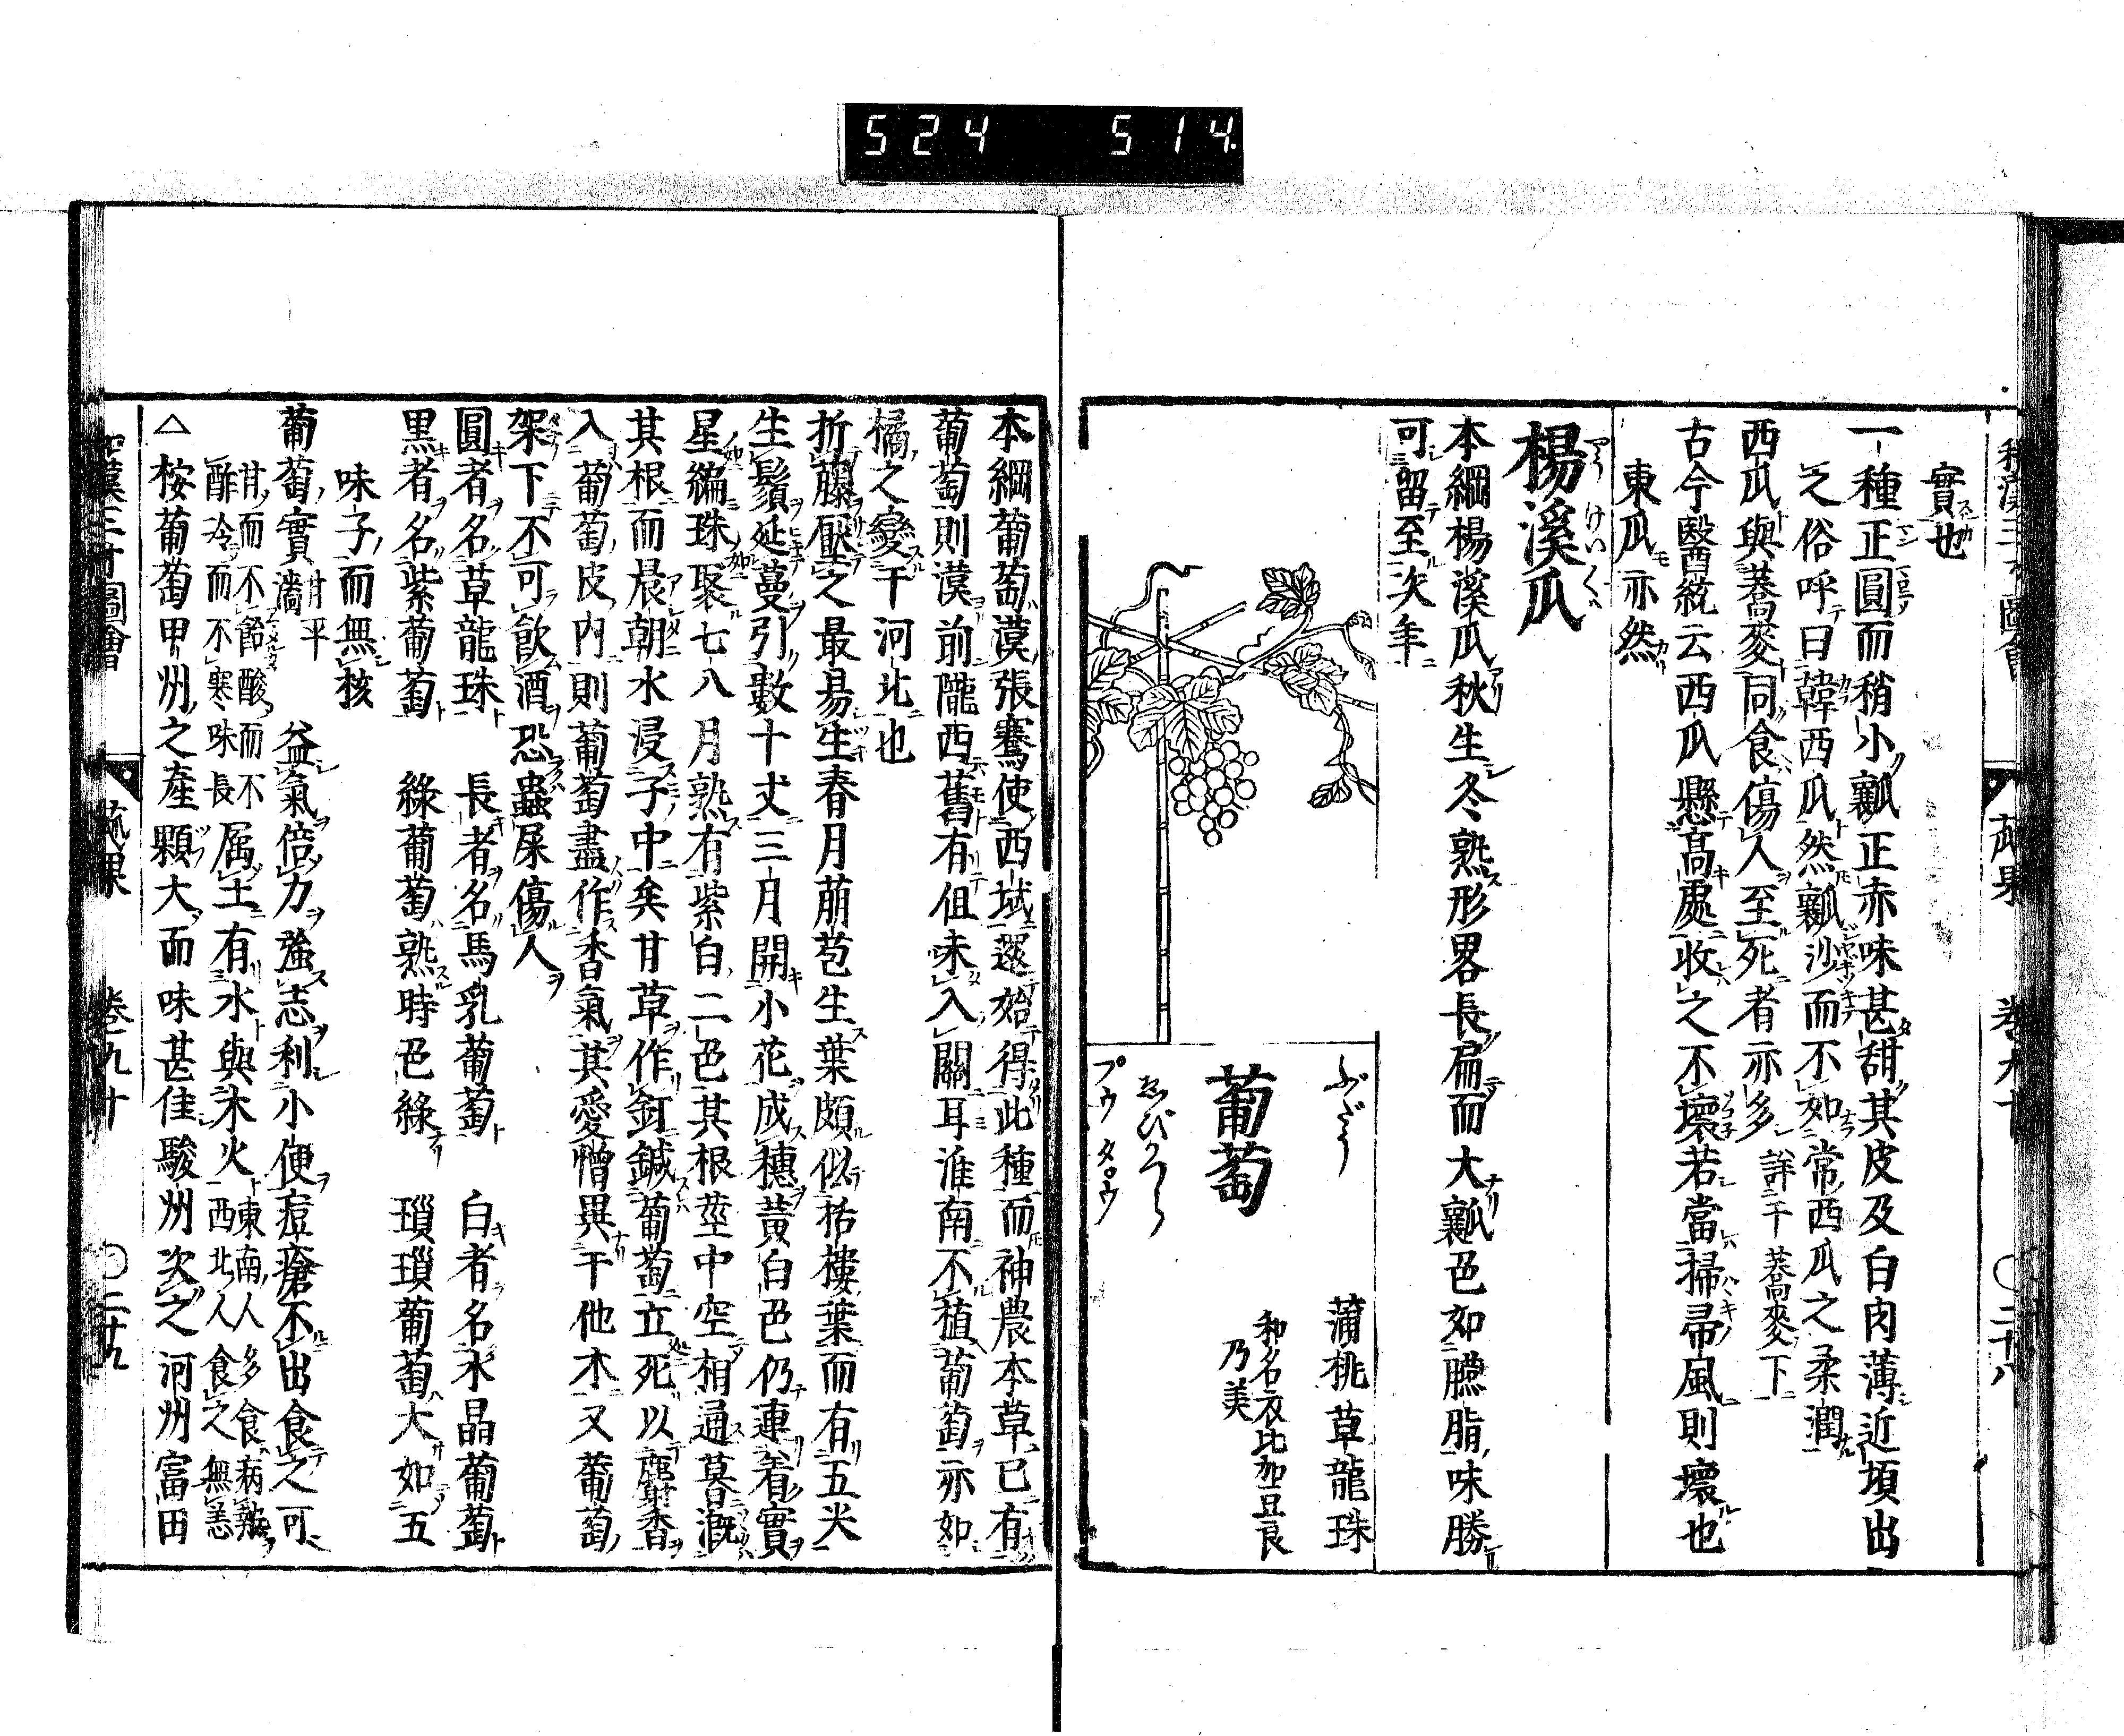 524 514
和漢三才圖會 蓏果 卷九十 〇二十八
實也
一種正圓而稍小瓤正赤味甚甜其皮及白肉薄近頃出
之俗呼曰韓西瓜然瓤沙而不如常西瓜之柔潤
西瓜與蕎麥同食傷人至死者亦多 詳于蕎麥下
古今醫統云西瓜懸高處收之不壞若當掃帚風則壞也
東瓜亦然
楊溪瓜
本綱楊溪瓜秋生冬熟形畧長扁而大瓤色如臙脂味勝
可留至次年
ぶどう
蒲桃 草龍珠
葡萄
和名衣比加豆良
乃美
ゑびかつら
プウタ゚ウ
本綱葡萄漢張騫使西域還始得此種而神農本草已有
葡萄則漢前隴西舊有但未入關耳淮南不植葡萄亦如
橘之變于河北也
折藤壓之最易生春月萠苞生葉頗似栝樓葉而有五尖
生鬚延蔓引數十丈三月開小花成穗黃白色仍連着實
星編珠聚七八月熟有紫白二色其根莖中空相通暮漑
其根而晨朝水浸子中矣甘草作釘鍼葡萄立死以麝香
入葡萄皮內則葡萄盡作香氣其愛憎異于他木又葡萄
架下不可飮酒恐蟲屎傷人
圓者名草龍珠 長者名馬乳葡萄 白者名水晶葡萄
黑者名紫葡萄 綠葡萄熟時色綠 瑣瑣葡萄大如五
味子而無核
葡萄實 甘平濇 益氣倍力強志利小便痘瘡不出食之可
甘而不飴酸而不
酢冷而不寒味長 属土有水與木火 東南人多食病熱
西北人食之無恙
△桉葡萄甲州之産顆大而味甚佳駿州次之河州富田
和漢三才圖會 蓏果 卷九十 〇二十九